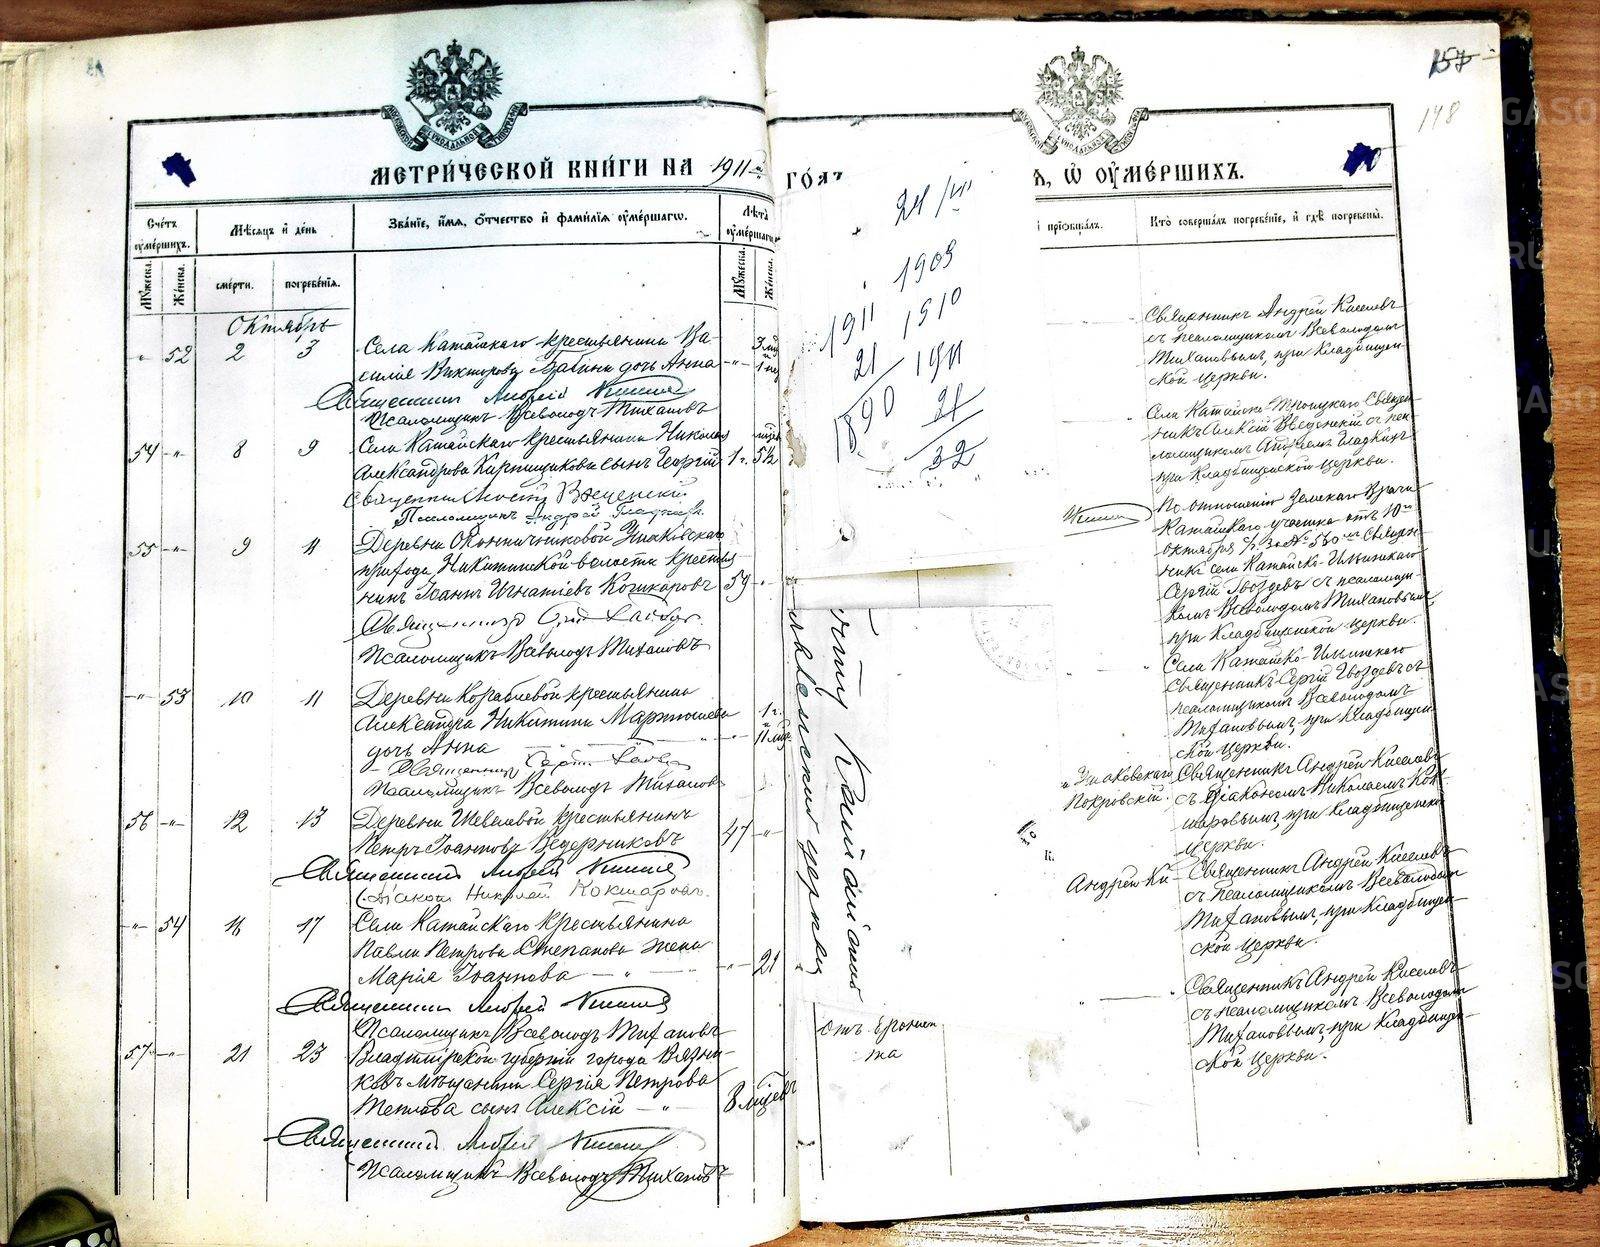 МЕТРИ́ЧЕСКОЙ КНИ́ГИ НА 1911
Счéтъ ѹмéршихъ.
Мѣ́сяцъ и дéнь
Звáнїе, и́мя, ѻ́тчество и фамилїя ѹмéршагѡ.
Лѣтá ѹмéршагѡ
Мꙋ́жеска. Жéнска.
смéрти. погребéнїя.
Мꙋ́жеска. Жéнска.
Октябрь
52 2 3 Села Катайскаго крестьянина Ва-
силія Викторова Бабина дочь Анна
Священникъ Андрей Киселевъ
Псаломщикъ Всеволодъ Тихановъ
54 8 9 Села Катайскаго крестьянина Николая
Александрова сынъ Георгій 1 г. 5½
Священникъ Алексій Введенскій
Псаломщикъ Андрей Гладкихъ
55 9 11 Деревни
прихода Никитинской волости крестья-
нинъ Іоаннъ Игнатіевъ Кошкаровъ 59
Священникъ Сергій Гвоздевъ
Псаломщикъ Всеволодъ Тихановъ
53 10 11 Деревни Кораблевой крестьянина
Александра Никитина 1 г.
дочь Анна 11
Священникъ Сергій Гвоздевъ
Псаломщикъ Всеволодъ Тихановъ
56 12 13 Деревни Шевелевой крестьянинъ
Петръ Іоанновъ Ведерниковъ 47
Священникъ Андрей Киселевъ
Діаконъ Николай Кокшаровъ
54 16 17 Села Катайскаго крестьянина
Павла Петрова Степанова жена
Марія Іоаннова 21
Священникъ Андрей Киселевъ
Псаломщикъ Всеволодъ Тихановъ
57 21 23 Владимірской губерніи города Вязни-
ковъ мѣщанина Сергія Петрова
Теплова сынъ Алексій 8 мѣсяцевъ
Священникъ Андрей Киселевъ
Псаломщикъ Всеволодъ Тихановъ
24/VII
1909
1911 1910
21 1911
1890 21
32
157
148
Я, Ѡ ОУМÉРШИХЪ.
Ктò совершáлъ погребéнїе, и гдѣ̀ погребены̀.
Священникъ Андрей Киселевъ
съ псаломщикомъ Всеволодомъ
Тихановымъ, при Кладбищен-
ской церкви.
Села Катайско-Троицкаго Священ-
никъ Алексій Введенскій съ пса-
ломщикомъ Андреемъ Гладкихъ
при Кладбищенской церкви.
По отношенію Земскаго Врача
Катайскаго участка отъ 10го
октября с/г за № 550 Священ-
никъ села Катайско-Ильинскаго
Сергій Гвоздевъ съ псаломщи-
комъ Всеволодомъ Тихановымъ,
при Кладбищенской церкви.
Села Катайско-Ильинскаго
Священникъ Сергій Гвоздевъ съ
псаломщикомъ Всеволодомъ
Тихановымъ, при Кладбищен-
ской церкви.
Покровскій. Священникъ Андрей Киселевъ
съ діакономъ Николаемъ Кок-
шаровымъ, при Кладбищенской
церкви.
Андрей Ки- Священникъ Андрей Киселевъ
съ псаломщикомъ Всеволодомъ
Тихановымъ, при Кладбищен-
ской церкви.
Священникъ Андрей Киселевъ
съ псаломщикомъ Всеволодомъ
Тихановымъ, при Кладбищен-
ской церкви.